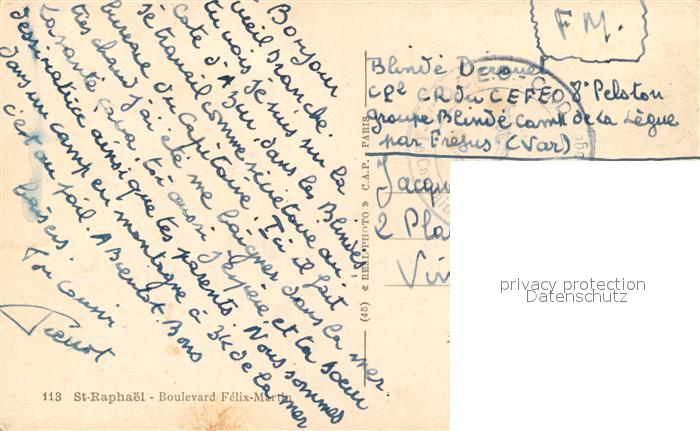 Bonjour
vieil branché.
tu vois je suis sur la
Cote d'Azur dans les Blindés.
Je travail comme secrétaire au
bureau du capitaine. Ici il fait
très chaud j'ai été me baigner dans la mer.
La santé ça va, toi aussi j'espère et ta soeur
dessinatrice ainsi que tes parents. Nous sommes
dans un camp en montagne à 3K de la mer
c'est au poil. A Bientot. Bons
baisers.
Ton cousin
Pierrot
F M.
Blindé Derouet
CR du CEFEO 8° Peloton
groupe Blindé camp de la Lègue
par Fréjus (Var)
Jacqu
2 Pla
Vin
(45) « REAL-PHOTO » C.A.P. PARIS
113 St-Raphaël - Boulevard Félix-Martin
privacy protection
Datenschutz